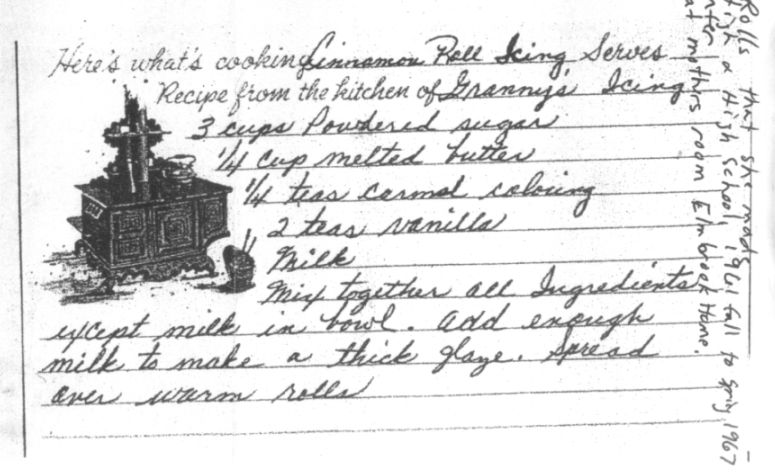 Here's what's cooking Cinnamon Roll Icing Serves
Recipe from the kitchen of Granny's Icing
3 cups Powdered sugar
1/4 cup melted butter
1/4 teas carmel coloring
2 teas vanilla
Milk
Mix together all Ingredients
except milk in bowl. Add enough
milk to make a thick glaze. Spread
over warm rolls
Rolls that she made
High School, 1961 fall to Spring 1967
at mothers room Elmbrook Home.